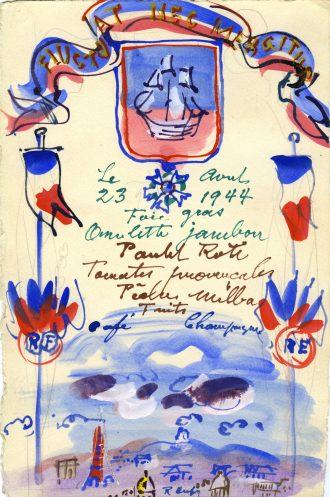 FLUCTUAT NEC MERGITUR
Le
23 1944
Foie gras
Omelette jambon
Poulet Roti
Tomates provencales
Pêches Melba
Fruits
Café Champagne
RF RF